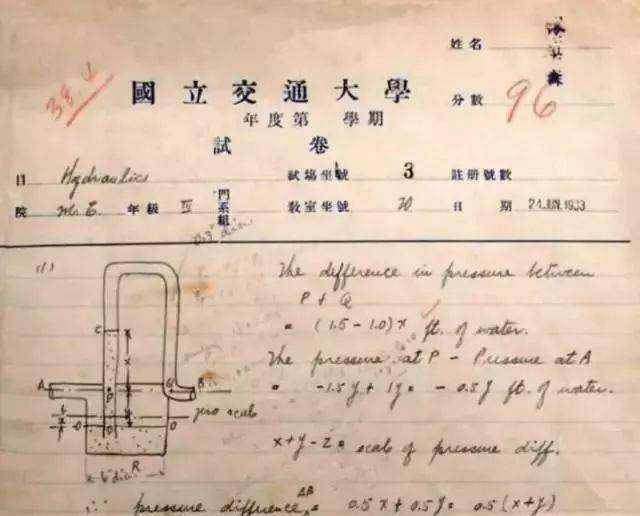 姓名
國立交通大學
分數 96
年度第 學期
試卷
目 Hydraulics 試場坐號 3 註册號數
院 M.E. 年級 III 門系組 教室坐號 20 日期 24 JUN 1933
(1) The difference in pressure between
P + Q
= (1.5 - 1.0)x ft. of water.
The pressure at P - Pressure at A
= -1.5y + 1y = -0.5y ft. of water.
x+y-z = scale of pressure diff.
∴ pressure difference = 0.5x + 0.5y = 0.5(x+y)
C
x
A
P
Q
B
zero scale
R
6" dia.